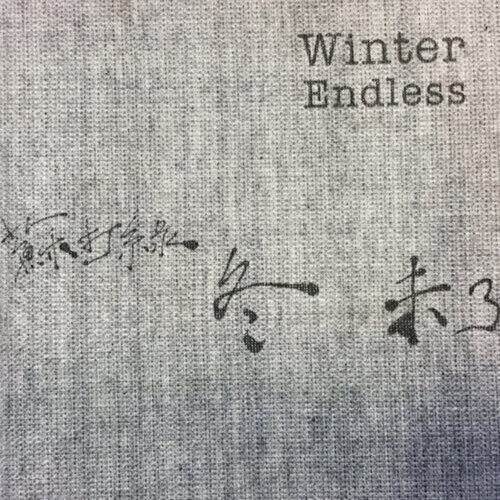 Winter
Endless
蘇打綠
冬 未了